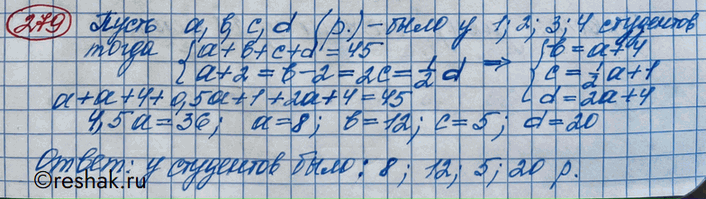 279 Пусть a, b, c, d (р.) – было у 1; 2; 3; 4 студентов
тогда { a + b + c + d = 45 ⇒ { b = a + 4
a + 2 = b - 2 = 2c = 1/2 d c = 1/2 a + 1
a + a + 4 + 0,5a + 1 + 2a + 4 = 45 d = 2a + 4
4,5a = 36; a = 8; b = 12; c = 5; d = 20
Ответ: у студентов было: 8; 12; 5; 20 р.
©reshak.ru